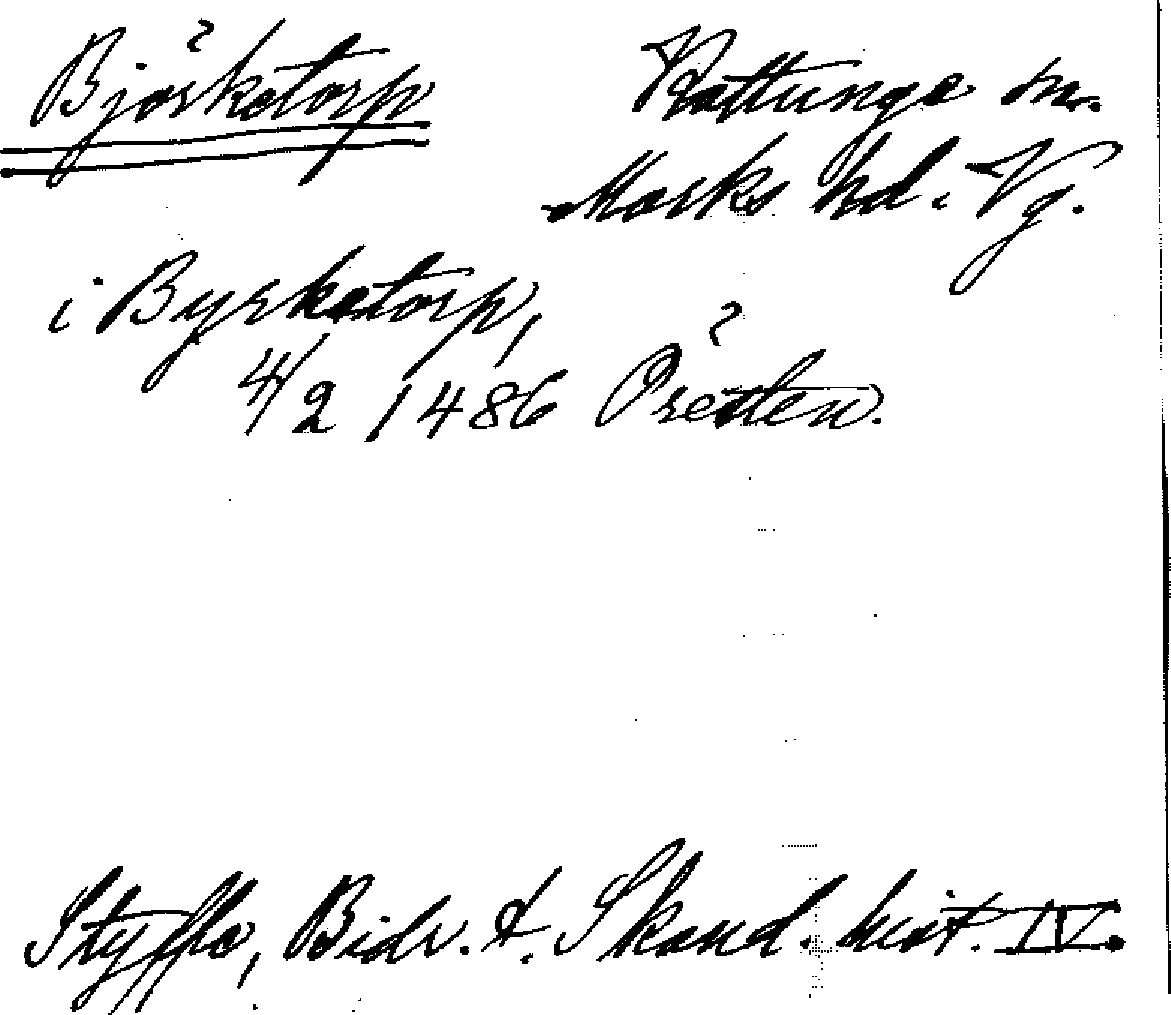 Björketorp
Kattunga sn.
Marks hd. Vg.
i Byrketorp,
4/2 1486 Örësten.
Styffe, Bidr. t. Skand. hist. IV.